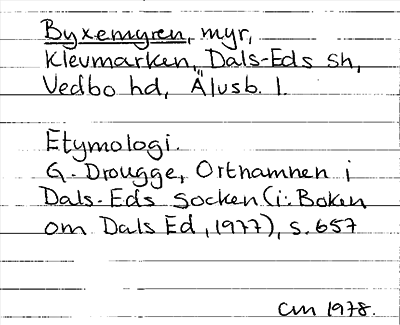 Byxemyren, myr,
Klevmarken, Dals-Eds sh,
Vedbo hd, Älvsb. l.
Etymologi.
G. Drougge, Ortnamnen i
Dals-Eds socken (i: Boken
om Dals Ed, 1977), s. 657
CM 1978.